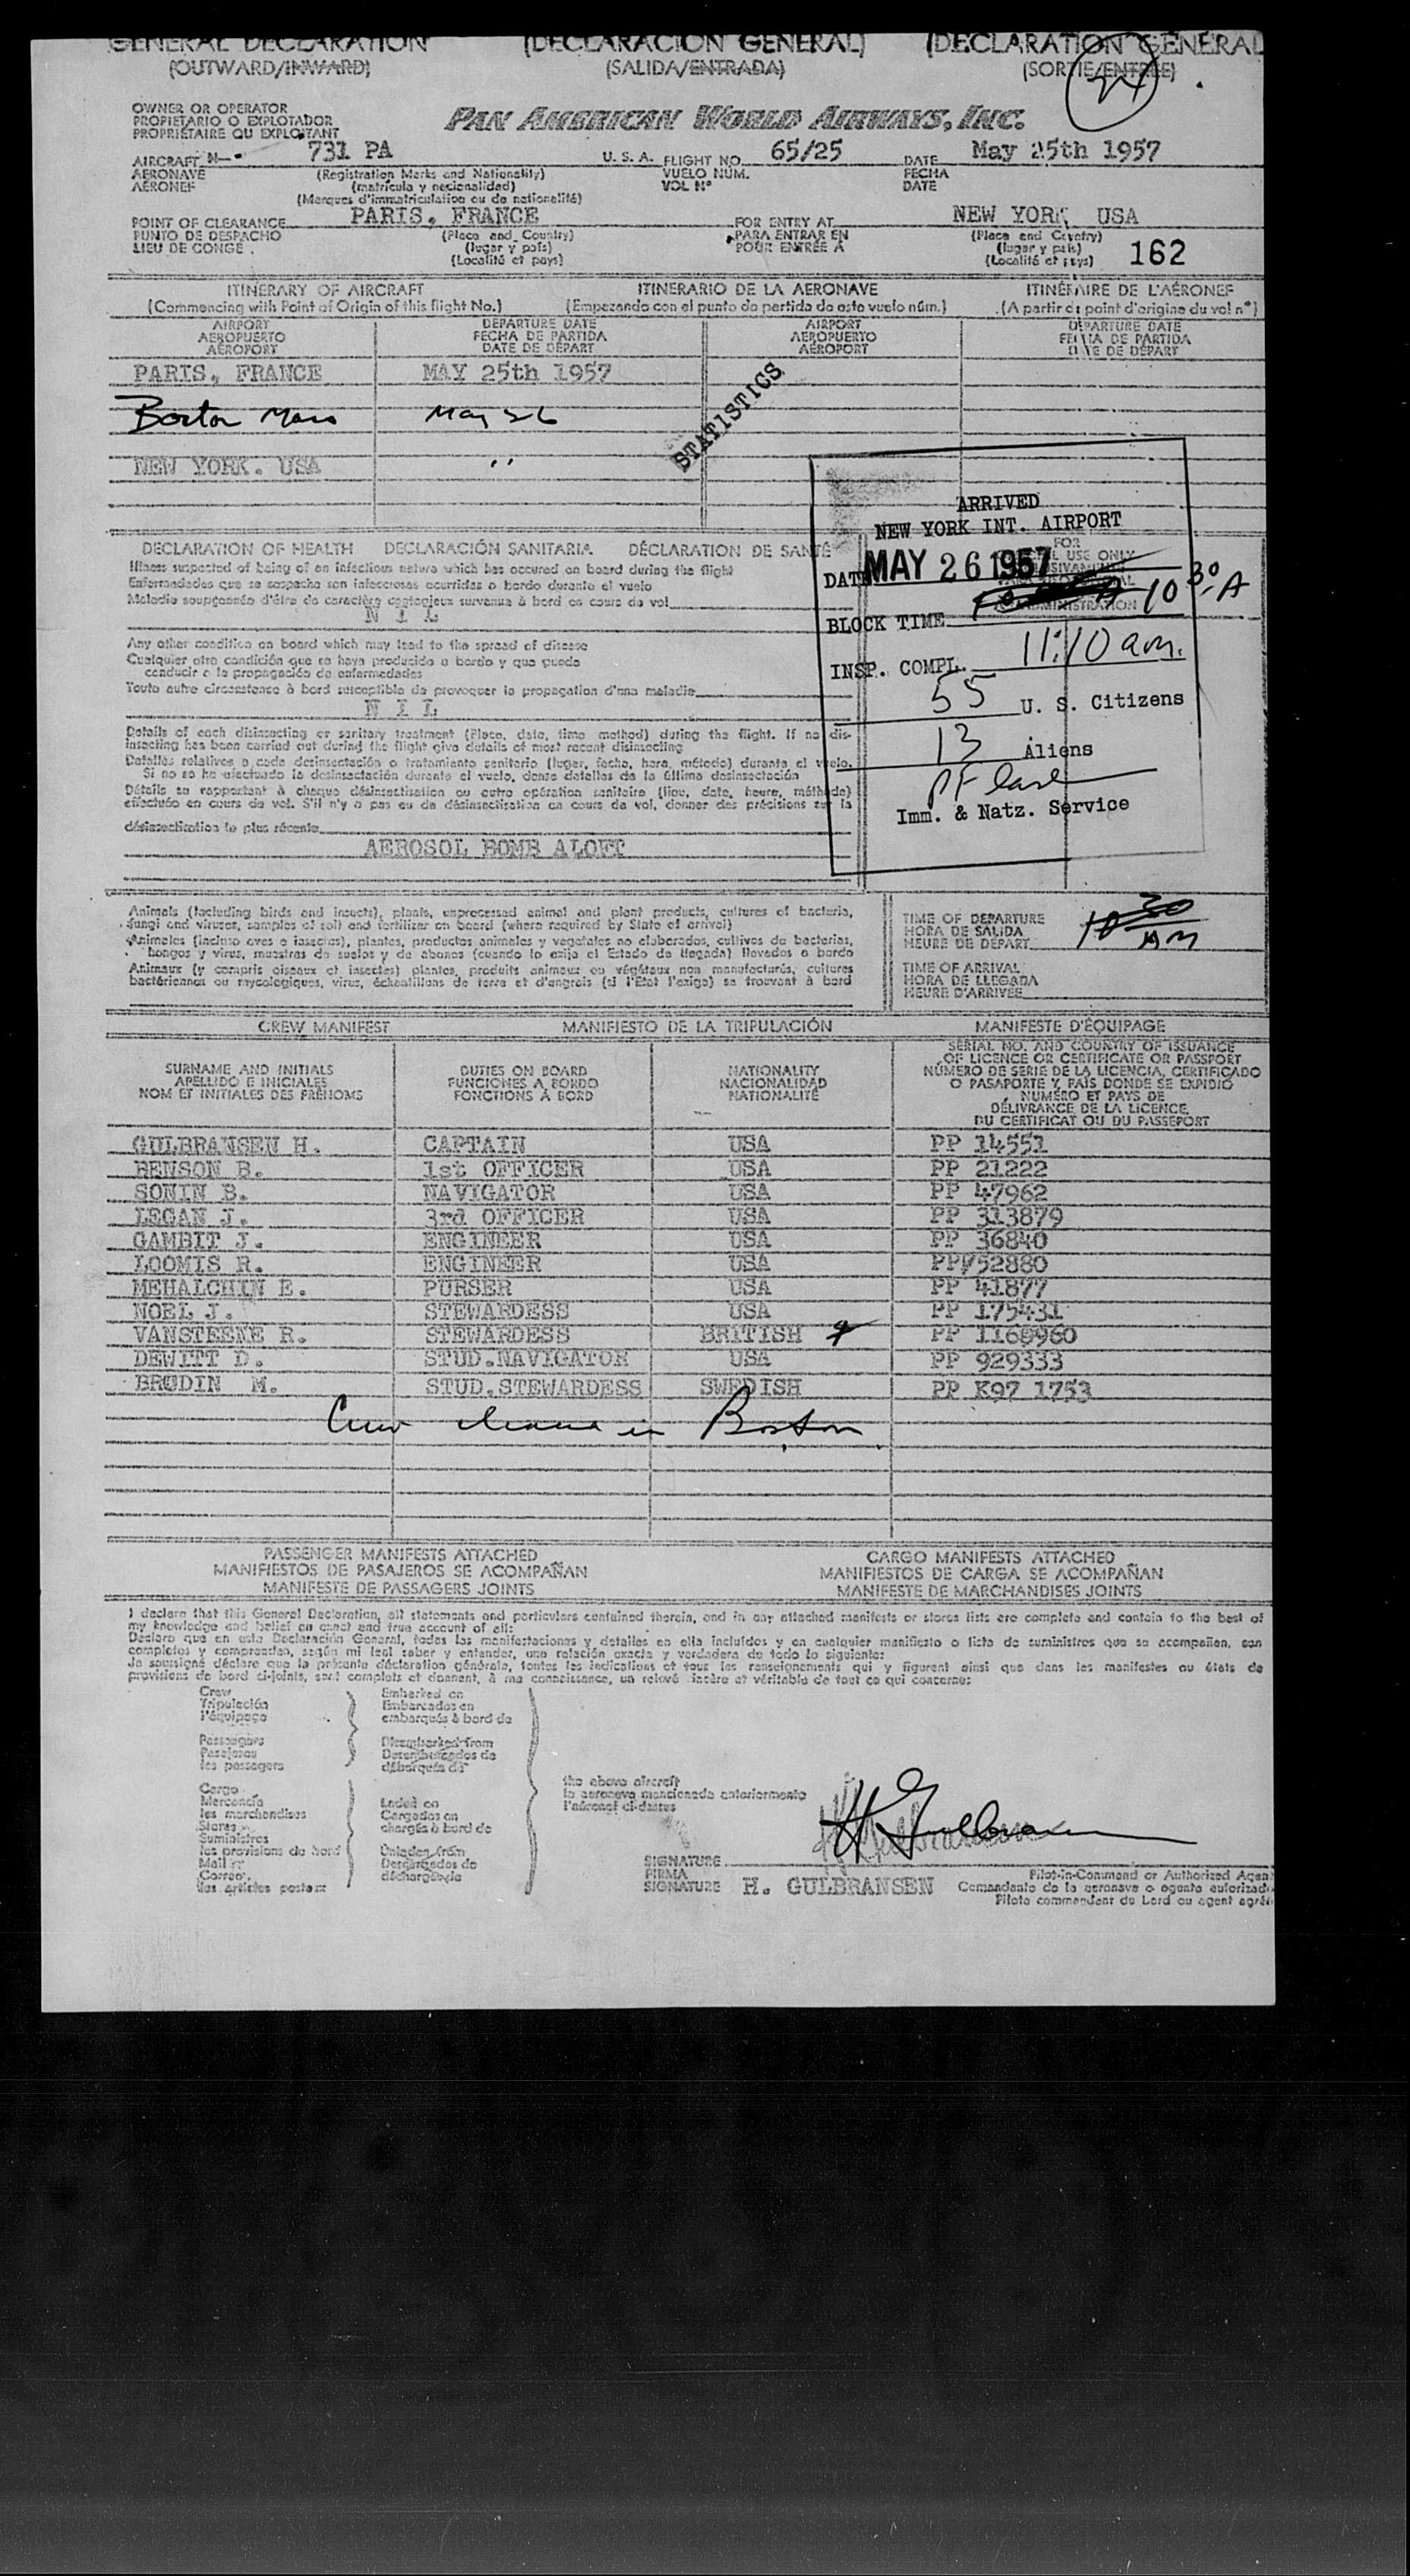 GENERAL DECLARATION (DECLARACION GENERAL) (DECLARATION GENERAL
(OUTWARD/INWARD) (SALIDA/ENTRADA) (SORTIE/ENTRÉE)
OWNER OR OPERATOR
PROPIETARIO O EXPLOTADOR
PROPRIÉTAIRE OU EXPLOITANT
PAN AMERICAN WORLD AIRWAYS, INC.
AIRCRAFT N— 731 PA U. S. A. FLIGHT NO. 65/25 DATE May 25th 1957
AERONAVE (Registration Marks and Nationality) VUELO NÚM. FECHA
AÉRONEF (matrícula y nacionalidad) VOL Nº DATE
(Marques d'immatriculation ou de nationalité)
POINT OF CLEARANCE PARIS, FRANCE FOR ENTRY AT NEW YORK USA
PUNTO DE DESPACHO (Place and Country) PARA ENTRAR EN (Place and Country)
LIEU DE CONGE (lugar y país) POUR ENTRÉE A (lugar y país)
(Localité et pays) (Localité et pays) 162
ITINERARY OF AIRCRAFT ITINERARIO DE LA AERONAVE ITINÉRAIRE DE L'AÉRONEF
(Commencing with Point of Origin of this flight No.) (Empezando con el punto de partida de este vuelo núm.) (A partir du point d'origine du vol nº)
AIRPORT DEPARTURE DATE AIRPORT DEPARTURE DATE
AEROPUERTO FECHA DE PARTIDA AEROPUERTO FECHA DE PARTIDA
AÉROPORT DATE DE DÉPART AÉROPORT DATE DE DÉPART
PARIS, FRANCE MAY 25th 1957
STATISTICS
Boston Mass May 26
NEW YORK. USA "
ARRIVED
NEW YORK INT. AIRPORT
DATE MAY 26 1957
BLOCK TIME 10 30 A
INSP. COMPL. 11:10 am.
55 U. S. Citizens
13 Aliens
Imm. & Natz. Service
DECLARATION OF HEALTH DECLARACIÓN SANITARIA DÉCLARATION DE SANTÉ
Illness suspected of being of an infectious nature which has occured on board during the flight
Enfermedades que se sospecha son infecciosas ocurridas a bordo durante el vuelo
Maladie soupçonnée d'être de caractère contagieux survenue à bord en cours de vol
N I L
Any other condition on board which may lead to the spread of disease
Cualquier otra condición que se haya producido a bordo y que pueda
conducir a la propagación de enfermedades
Toute autre circonstance à bord susceptible de provoquer la propagation d'une maladie
N I L
Details of each disinsecting or sanitary treatment (Place, date, time method) during the flight. If no dis-
insecting has been carried out during the flight give details of most recent disinsecting
Detalles relativos a cada desinsectación o tratamiento sanitario (lugar, fecha, hora, método) durante el vuelo.
Si no se ha efectuado la desinsectación durante el vuelo, dense detalles de la última desinsectación
Détails se rapportant à chaque désinsectisation ou autre opération sanitaire (lieu, date, heure, méthode)
effectuée en cours de vol. S'il n'y a pas eu de désinsectisation en cours de vol, donner des précisions sur la
désinsectisation la plus récente
AEROSOL BOMB ALOFT
Animals (Including birds and insects), plants, unprocessed animal and plant products, cultures of bacteria,
fungi and viruses, samples of soil and fertilizer on board (where required by State of arrival)
Animales (incluso aves e insectos), plantas, productos animales y vegetales no elaborados, cultivos de bacterias,
hongos y virus, muestras de suelos y de abonos (cuando lo exija el Estado de llegada) llevados a bordo
Animaux (y compris oiseaux et insectes) plantes, produits animaux ou végétaux non manufacturés, cultures
bactériennes ou mycologiques, virus, échantillons de terre et d'engrais (si l'État l'exige) se trouvant à bord
TIME OF DEPARTURE
HORA DE SALIDA
HEURE DE DÉPART 10 30 AM
TIME OF ARRIVAL
HORA DE LLEGADA
HEURE D'ARRIVÉE
CREW MANIFEST MANIFIESTO DE LA TRIPULACIÓN MANIFESTE D'ÉQUIPAGE
SURNAME AND INITIALS DUTIES ON BOARD NATIONALITY SERIAL NO. AND COUNTRY OF ISSUANCE
APELLIDO E INICIALES FUNCIONES A BORDO NACIONALIDAD OF LICENCE OR CERTIFICATE OR PASSPORT
NOM ET INITIALES DES PRÉNOMS FONCTIONS À BORD NATIONALITÉ NÚMERO DE SERIE DE LA LICENCIA, CERTIFICADO
O PASAPORTE Y PAÍS DONDE SE EXPIDIÓ
NUMÉRO ET PAYS DE
DÉLIVRANCE DE LA LICENCE,
DU CERTIFICAT OU DU PASSEPORT
GULBRANSEN H. CAPTAIN USA PP 14551
BENSON B. 1st OFFICER USA PP 21222
SONIN B. NAVIGATOR USA PP 47962
LEGAN J. 3rd OFFICER USA PP 313879
GAMBIT J. ENGINEER USA PP 36840
LOOMIS R. ENGINEER USA PP 52880
MEHALCHIN E. PURSER USA PP 41877
NOEL J. STEWARDESS USA PP 175431
VANSTEENE R. STEWARDESS BRITISH PP 1160960
DEWITT D. STUD.NAVIGATOR USA PP 929333
BRODIN M. STUD.STEWARDESS SWEDISH PP K97 1753
Crew change in Boston
PASSENGER MANIFESTS ATTACHED CARGO MANIFESTS ATTACHED
MANIFIESTOS DE PASAJEROS SE ACOMPAÑAN MANIFIESTOS DE CARGA SE ACOMPAÑAN
MANIFESTE DE PASSAGERS JOINTS MANIFESTE DE MARCHANDISES JOINTS
I declare that this General Declaration, all statements and particulars contained therein, and in any attached manifests or stores lists are complete and contain to the best of
my knowledge and belief an exact and true account of all:
Declaro que en esta Declaración General, todas las manifestaciones y detalles en ella incluídos y en cualquier manifiesto o lista de suministros que se acompañen, son
completos y comprenden, según mi leal saber y entender, una relación exacta y verdadera de todo lo siguiente:
Je soussigné déclare que la présente déclaration générale, toutes les indications et tous les renseignements qui y figurent ainsi que dans les manifestes ou états de
provisions de bord ci-joints, sont complets et donnent, à ma connaissance, un relevé sincère et véritable de tout ce qui concerne:
Crew Embarked on
Tripulación Embarcados en
l'équipage embarqués à bord de
Passengers Disembarked from
Pasajeros Desembarcados de
les passagers débarqués de
Cargo
Mercancía Laded on
les marchandises Cargados en
Stores chargés à bord de
Suministros
les provisions de bord Unladen from
Mail Descargados de
Correo déchargés de
les articles postaux
the above aircraft
la aeronave mencionada anteriormente
l'aéronef ci-dessus
H Gulbransen
SIGNATURE
FIRMA
SIGNATURE H. GULBRANSEN
Pilot-in-Command or Authorized Agen
Comandante de la aeronave o agente autorizad
Pilote commandant de bord ou agent agré